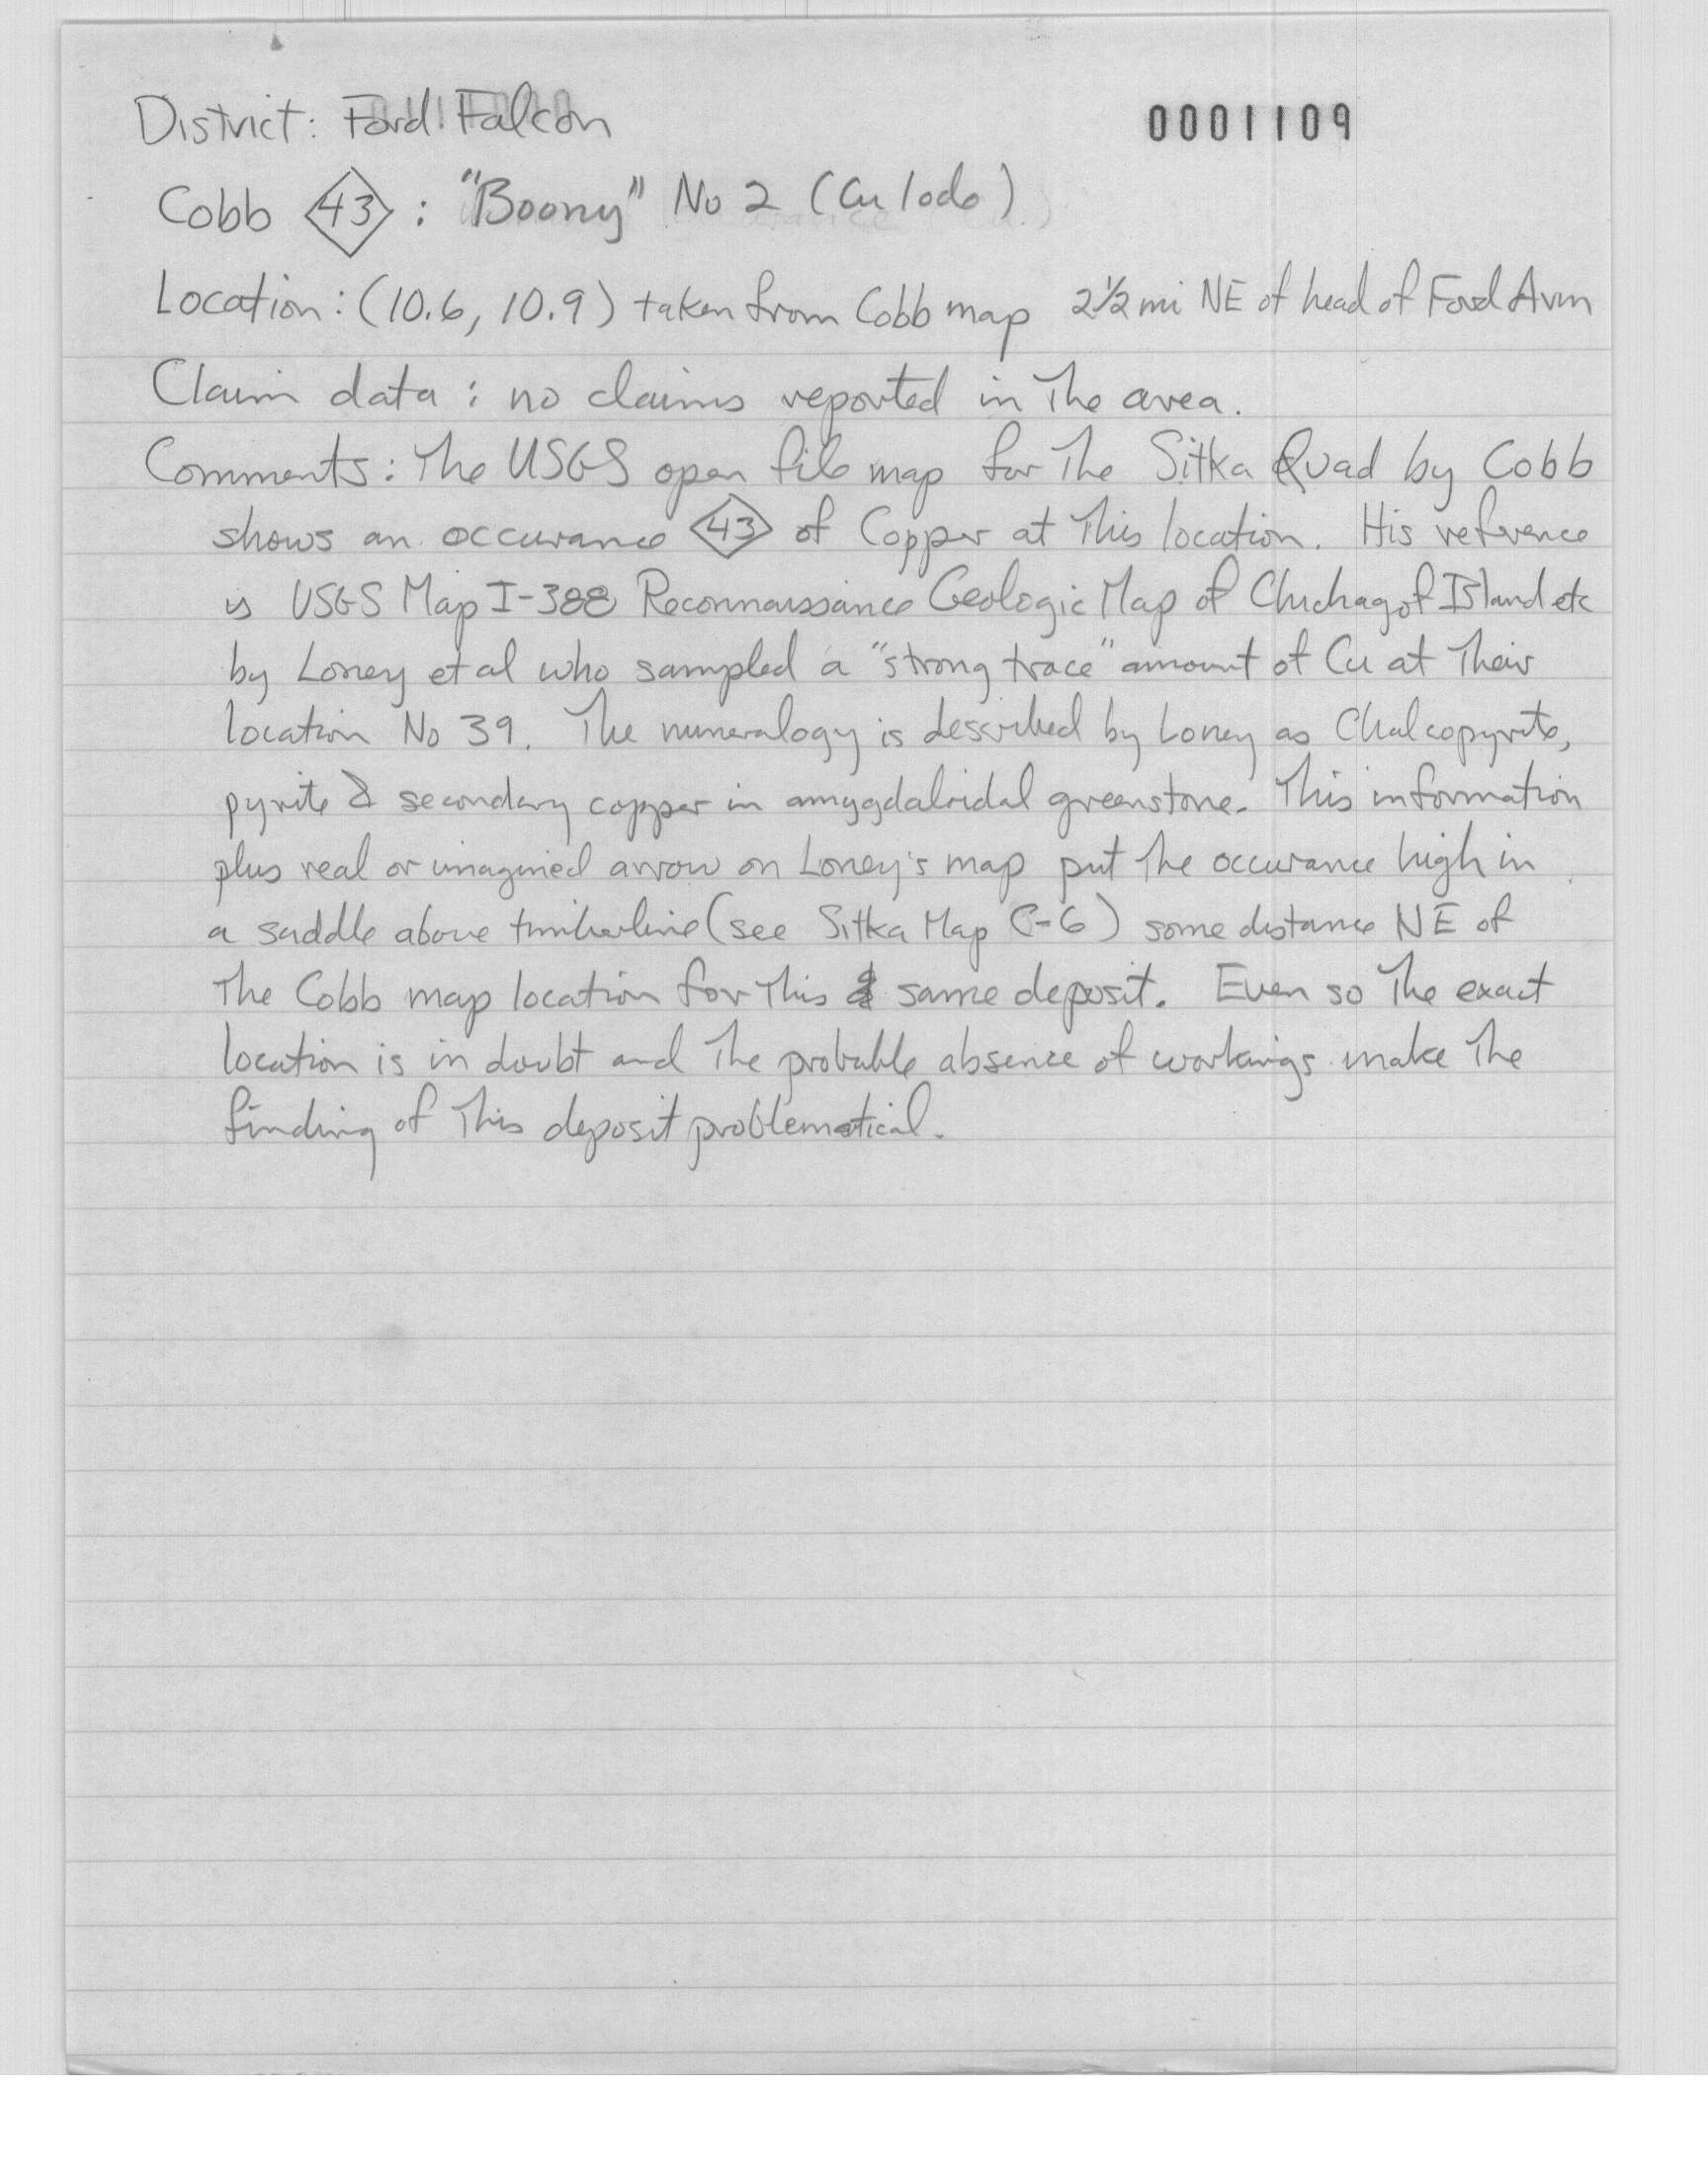 District: Ford Falcon
0001109
Cobb 43 : "Boony" No 2 (Cu lode)
Location: (10.6, 10.9) taken from Cobb map 2½ mi NE of head of Ford Arm
Claim data : no claims reported in The area.
Comments: The USGS open file map for The Sitka Quad by Cobb
shows an occurance 43 of Copper at This location. His reference
is USGS Map I-388 Reconnaissance Geologic Map of Chichagof Island etc
by Loney et al who sampled a "strong trace" amount of Cu at Their
location No 39. The mineralogy is described by Loney as Chalcopyrite,
pyrite & secondary copper in amygdaloidal greenstone. This information
plus real or imagined arrow on Loney's map put The occurance high in
a saddle above timberline (see Sitka Map C-6) some distance NE of
The Cobb map location for This same deposit. Even so The exact
location is in doubt and The probable absence of workings make The
finding of This deposit problematical.